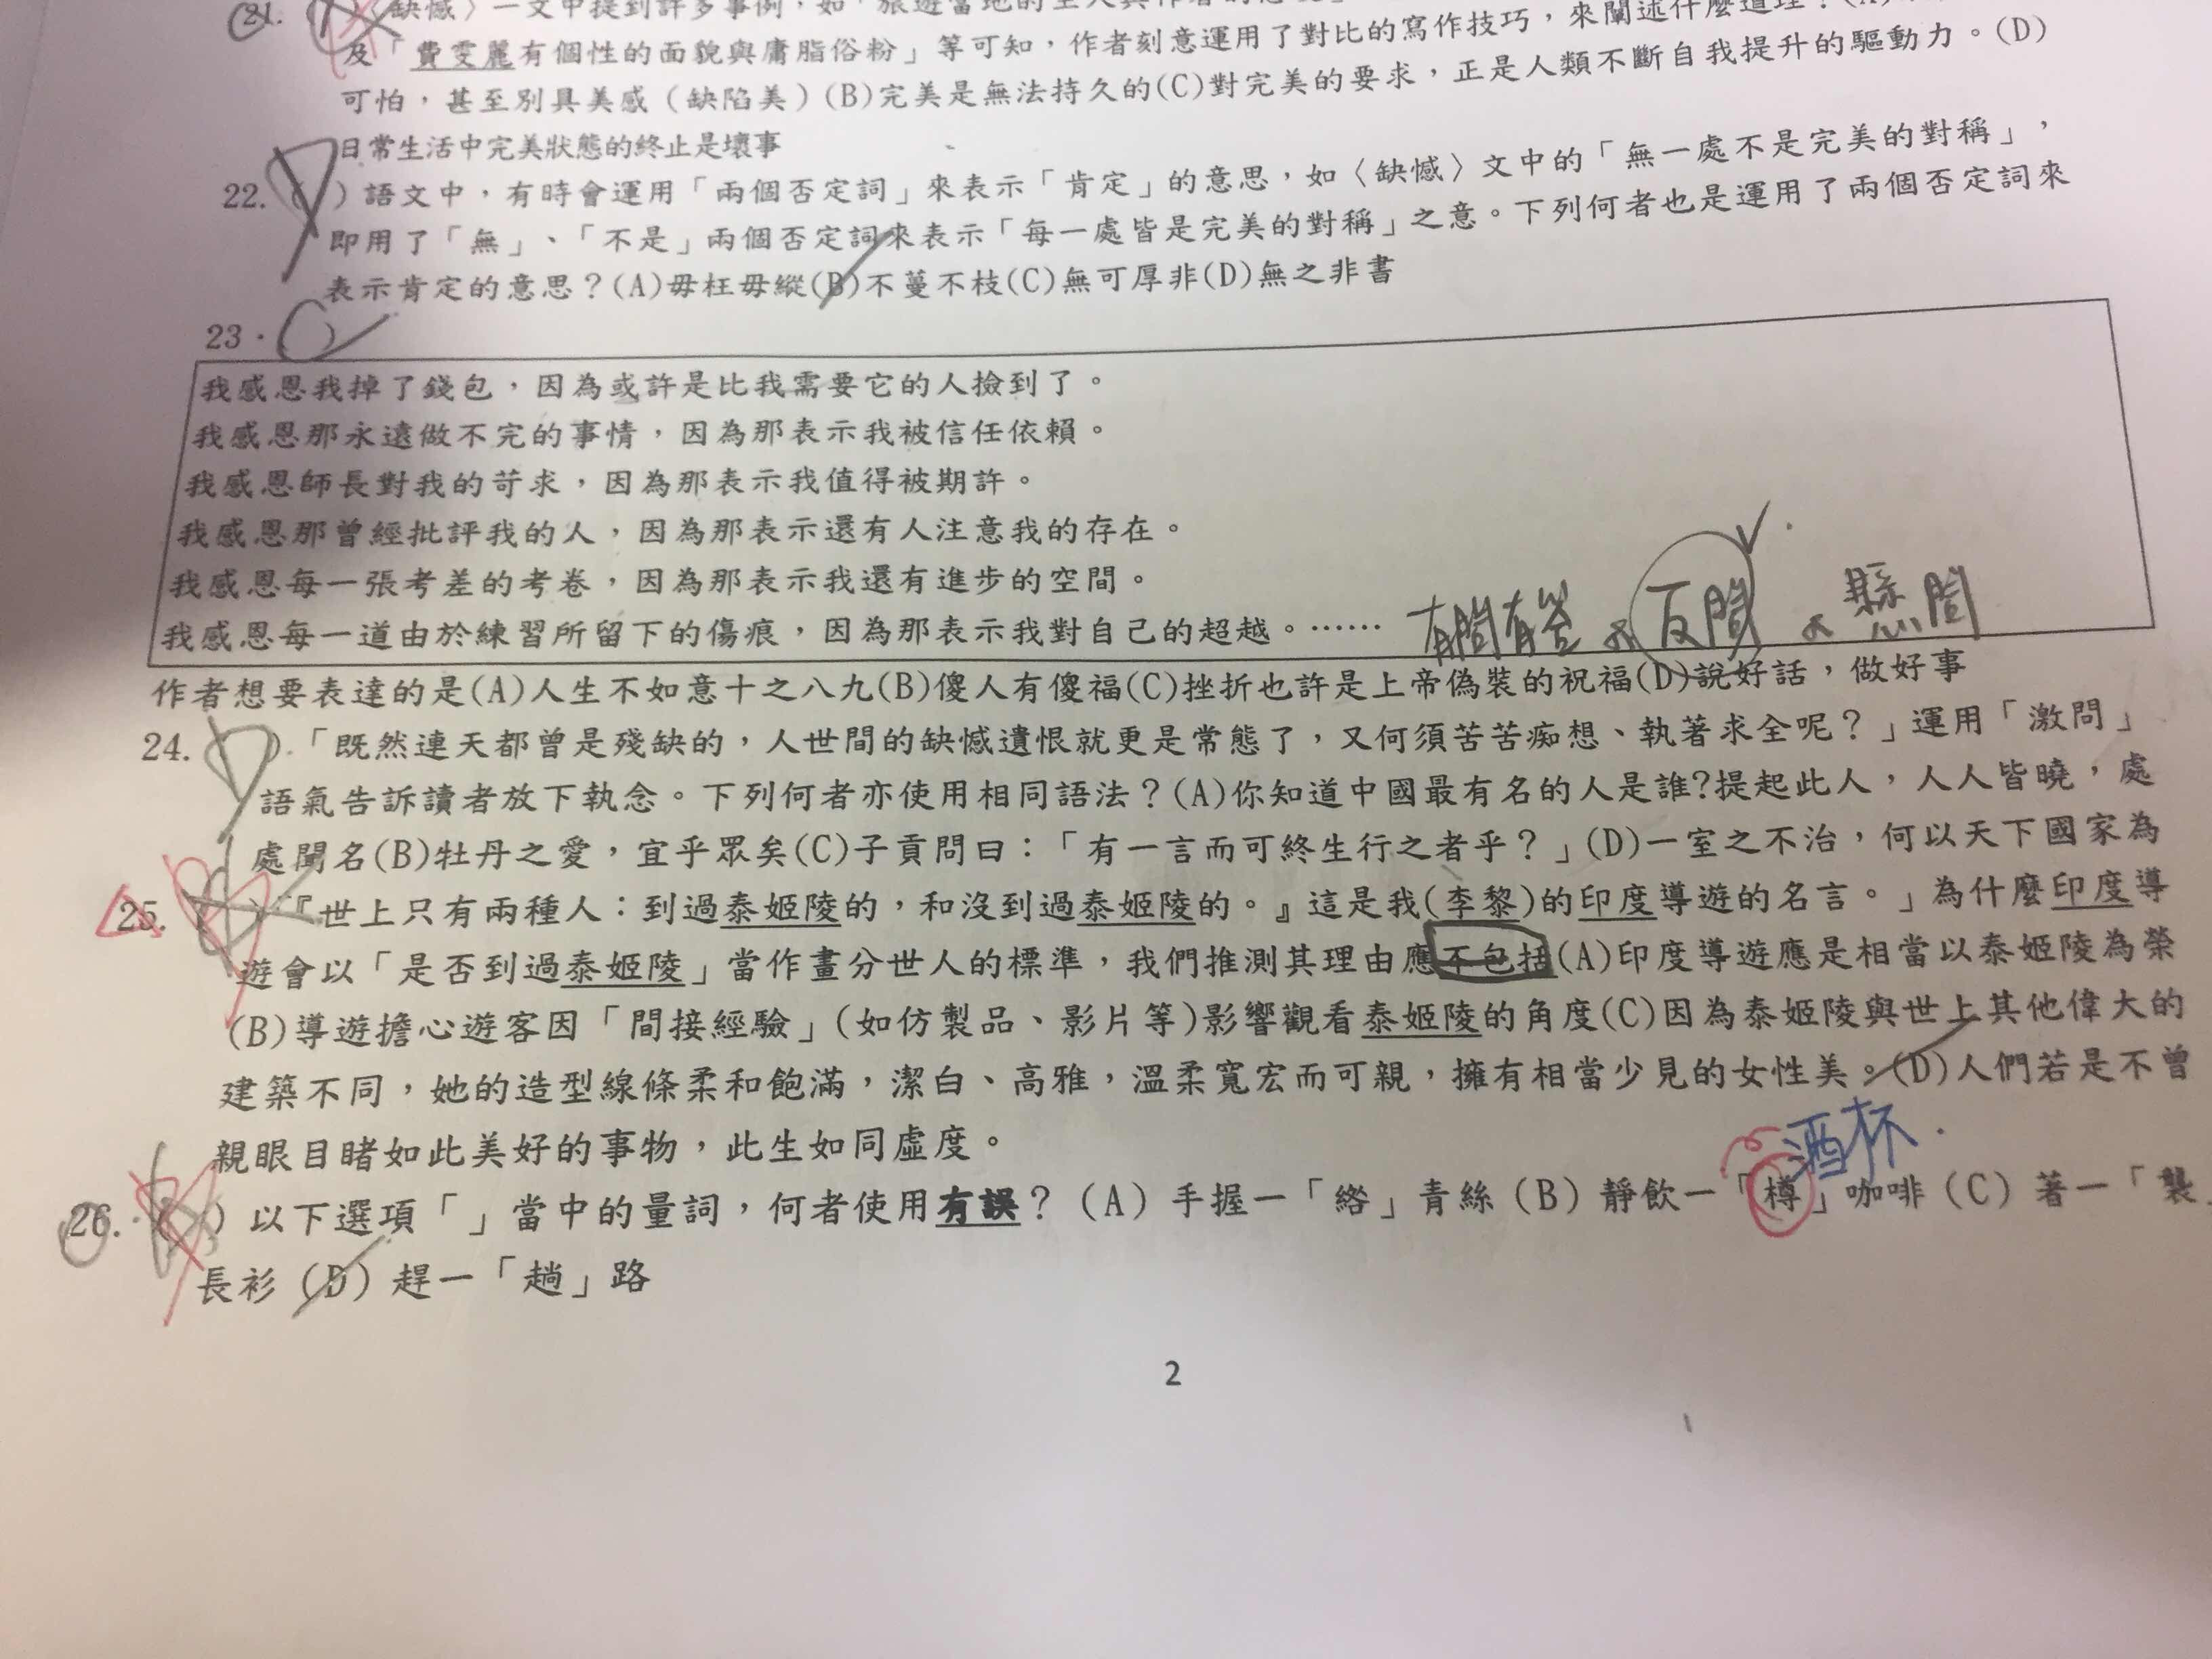 21. 缺憾〉一文中提到許多事例，如「旅遊當地的主人與作者的
及「費雯麗有個性的面貌與庸脂俗粉」等可知，作者刻意運用了對比的寫作技巧，來闡述什麼道理？(A)
可怕，甚至別具美感（缺陷美）(B)完美是無法持久的(C)對完美的要求，正是人類不斷自我提升的驅動力。(D)
日常生活中完美狀態的終止是壞事
22. ( ) 語文中，有時會運用「兩個否定詞」來表示「肯定」的意思，如〈缺憾〉文中的「無一處不是完美的對稱」，
即用了「無」、「不是」兩個否定詞來表示「每一處皆是完美的對稱」之意。下列何者也是運用了兩個否定詞來
表示肯定的意思？(A)毋枉毋縱(B)不蔓不枝(C)無可厚非(D)無之非書
23. ( )
我感恩我掉了錢包，因為或許是比我需要它的人撿到了。
我感恩那永遠做不完的事情，因為那表示我被信任依賴。
我感恩師長對我的苛求，因為那表示我值得被期許。
我感恩那曾經批評我的人，因為那表示還有人注意我的存在。
我感恩每一張考差的考卷，因為那表示我還有進步的空間。
我感恩每一道由於練習所留下的傷痕，因為那表示我對自己的超越。…… 有問有答 反問 懸問
作者想要表達的是(A)人生不如意十之八九(B)傻人有傻福(C)挫折也許是上帝偽裝的祝福(D)說好話，做好事
24. ( ) 「既然連天都曾是殘缺的，人世間的缺憾遺恨就更是常態了，又何須苦苦痴想、執著求全呢？」運用「激問」
語氣告訴讀者放下執念。下列何者亦使用相同語法？(A)你知道中國最有名的人是誰?提起此人，人人皆曉，處
處聞名(B)牡丹之愛，宜乎眾矣(C)子貢問曰：「有一言而可終生行之者乎？」(D)一室之不治，何以天下國家為
25. ( ) 『世上只有兩種人：到過泰姬陵的，和沒到過泰姬陵的。』這是我(李黎)的印度導遊的名言。」為什麼印度導
遊會以「是否到過泰姬陵」當作畫分世人的標準，我們推測其理由應不包括(A)印度導遊應是相當以泰姬陵為榮
(B)導遊擔心遊客因「間接經驗」(如仿製品、影片等)影響觀看泰姬陵的角度(C)因為泰姬陵與世上其他偉大的
建築不同，她的造型線條柔和飽滿，潔白、高雅，溫柔寬宏而可親，擁有相當少見的女性美。(D)人們若是不曾
親眼目睹如此美好的事物，此生如同虛度。
酒杯
26. ( ) 以下選項「」當中的量詞，何者使用有誤？（A）手握一「綹」青絲（B）靜飲一「樽」咖啡（C）著一「襲
長衫（D）趕一「趟」路
2